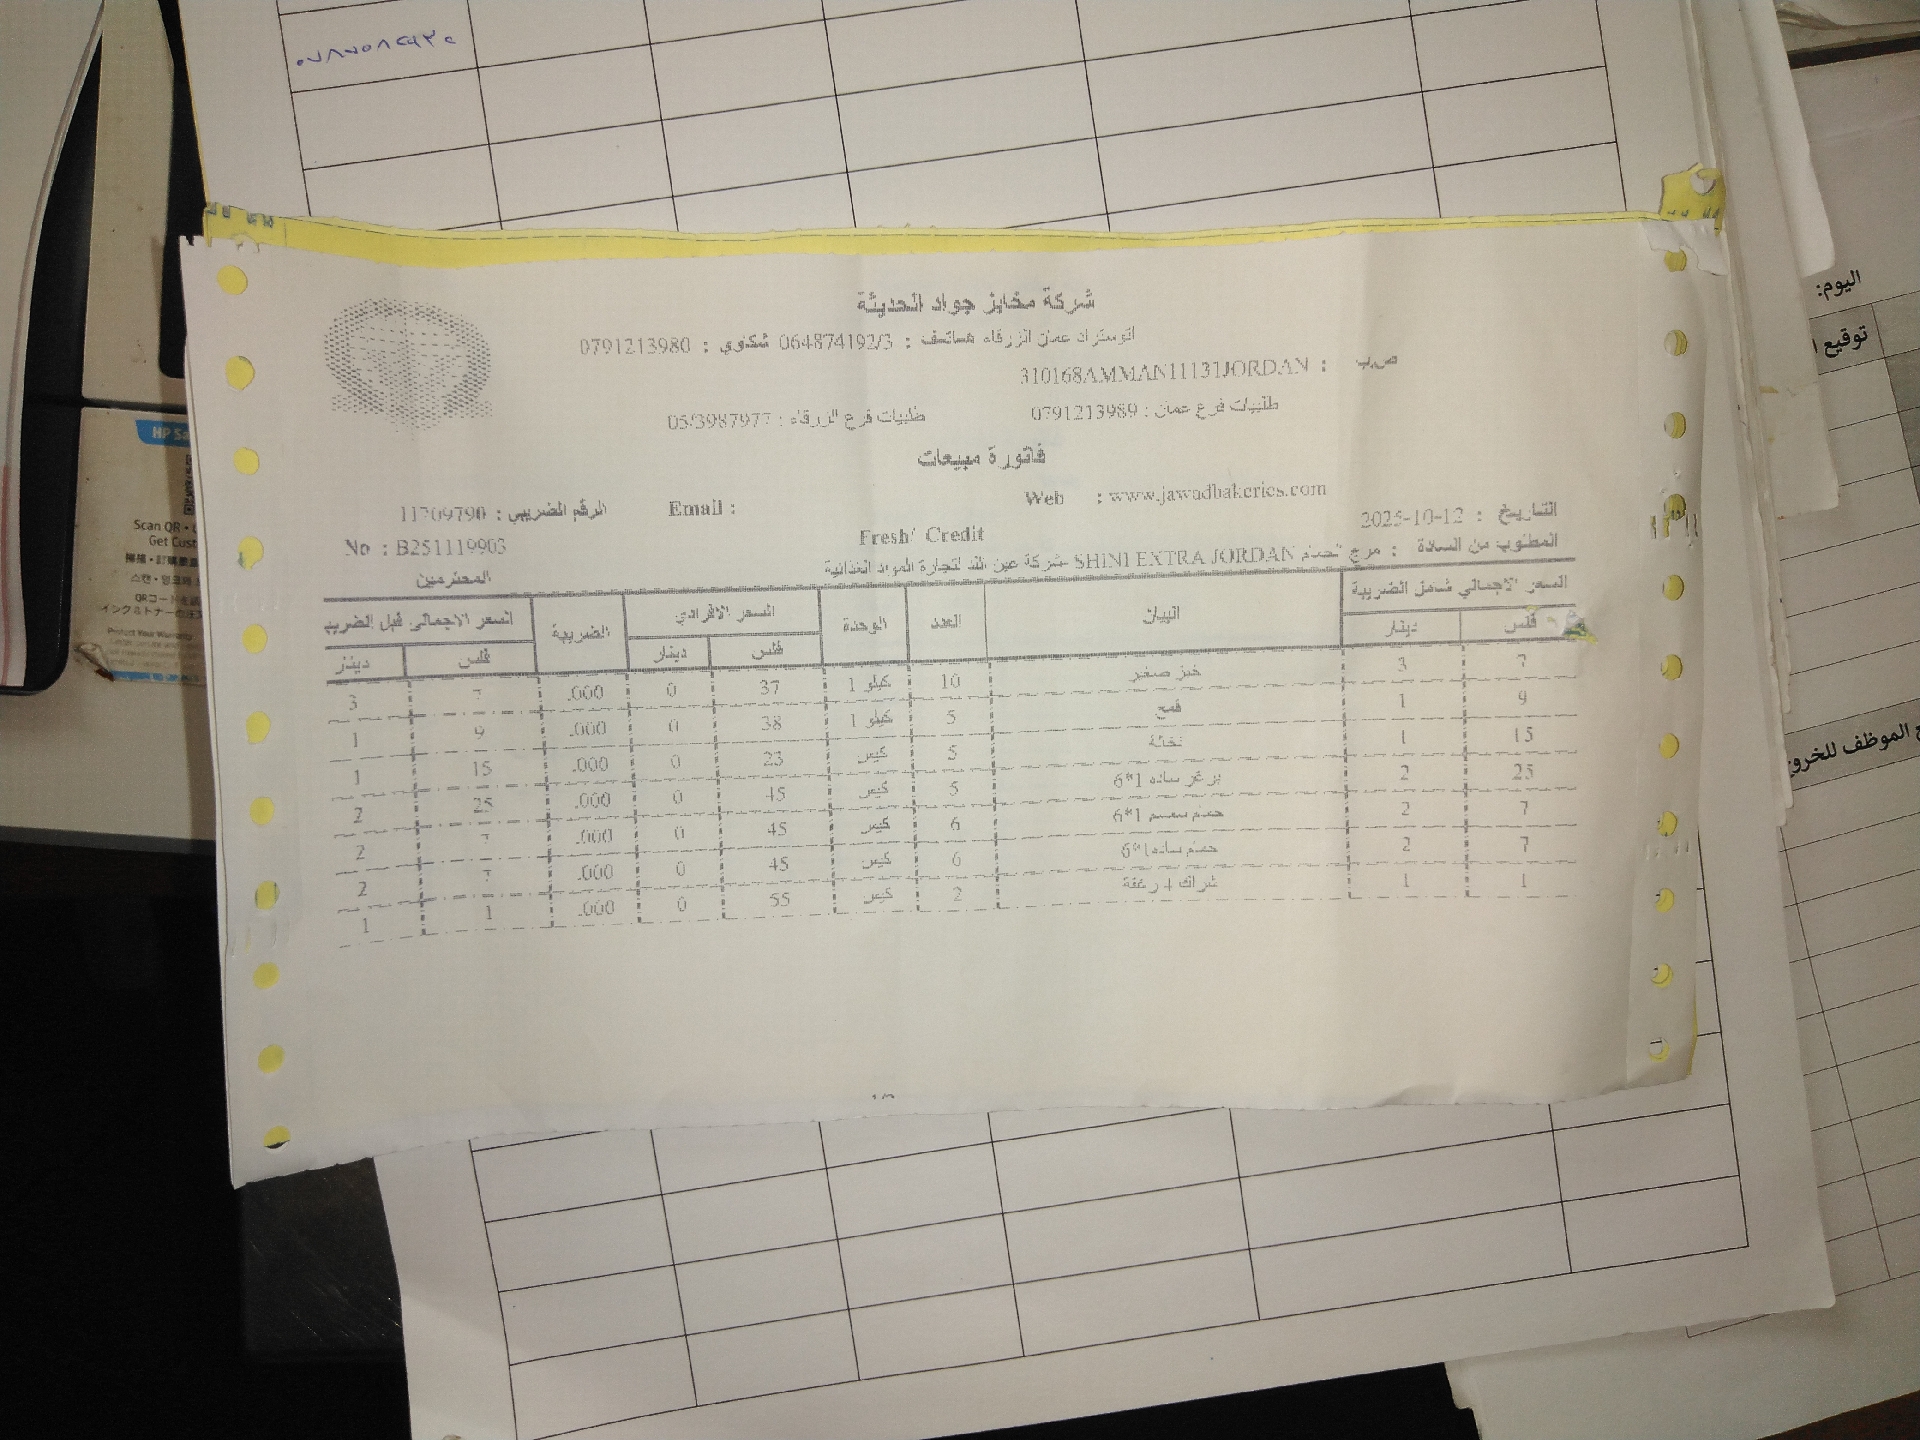 ٠٧٨٧٥٨٩٥٢٥
شركة مخابز جواد الحديثة
اتوستراد عمان الزرقاء هاتف : 064874192/3 شكاوي : 0791213980
ص.ب : 310168AMMAN11131JORDAN
طلبيات فرع عمان : 0791213989 طلبيات فرع الزرقاء : 05/3987977
فاتورة مبيعات
Web : www.jawadbakeries.com Email : الرقم الضريبي : 11709790
التاريخ : 2025-10-12 Fresh/ Credit No : B251119903
المطلوب من السادة : مرج الحمام SHINI EXTRA JORDAN شركة عين الفد لتجارة المواد الغذائية المحترمين
السعر الاجمالي شامل الضريبة البيان العدد الوحدة السعر الافرادي الضريبة السعر الاجمالي قبل الضريبة
فلس دينار فلس دينار فلس دينار
7 3 خبز صغير 10 كيلو 1 37 0 .000 7 3
9 1 قمح 5 كيلو 1 38 0 .000 9 1
15 1 نخالة 5 كيس 23 0 .000 15 1
25 2 برغر ساده 1*6 5 كيس 45 0 .000 25 2
7 2 حمام سمسم 1*6 6 كيس 45 0 .000 7 2
7 2 حمام ساده 1*6 6 كيس 45 0 .000 7 2
1 1 شراك 4 رغفة 2 كيس 55 0 .000 1 1
اليوم:
توقيع
الموظف للخروج
HP
Scan QR
Get Cust
Protect Your Warranty